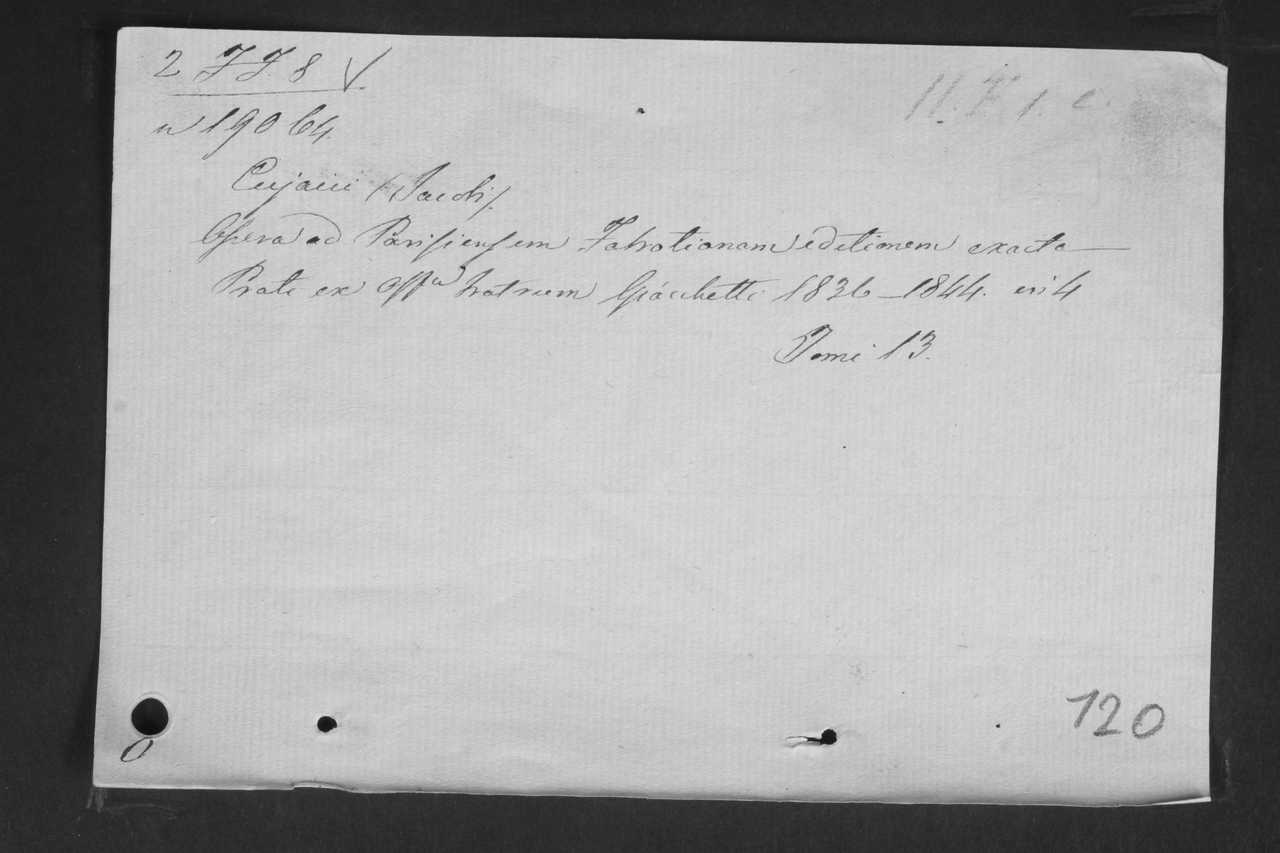 2 J J 8 V.
n 19064.
Cujacii (Jacobi).
Opera ad Parisiensem Fabrotianam editionem exacta —
Prati ex Offna fratrum Giachetti 1836–1844. in 4
Tomi 13.
120